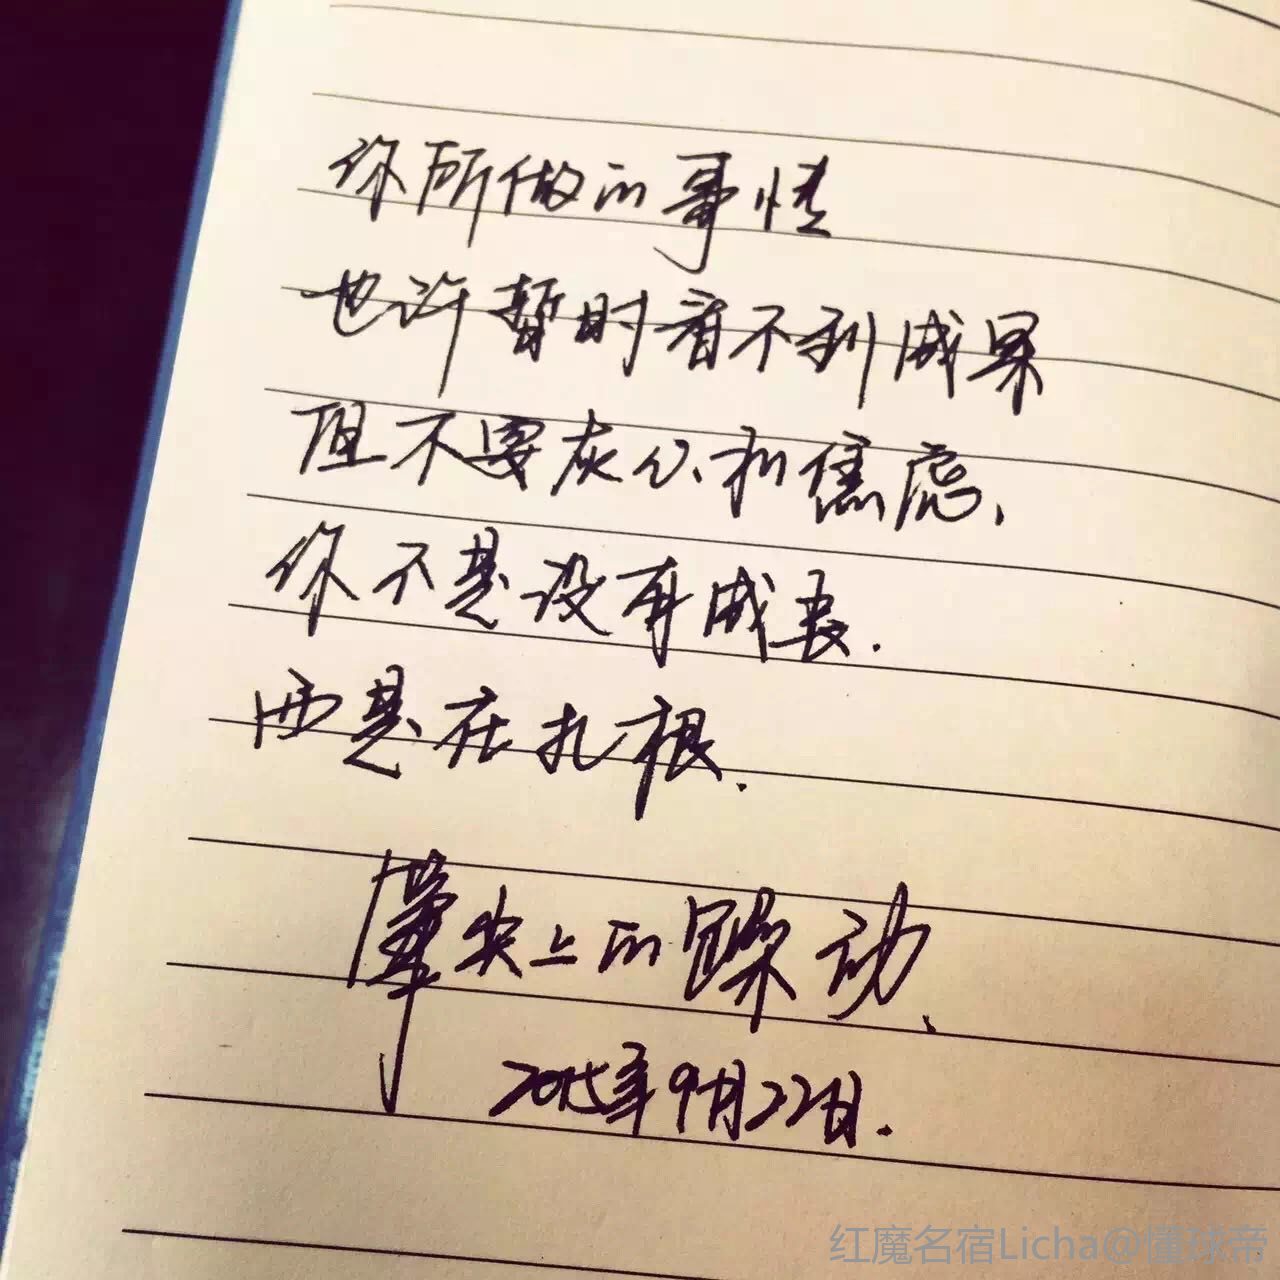 你所做的事情
也许暂时看不到成果
但不要灰心和焦虑、
你不是没有成长.
而是在扎根.
笔尖上的躁动、
2015年9月22日.
红魔名宿Licha@懂球帝